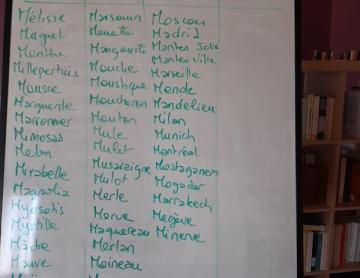 Mélisse
Muguet
Menthe
Millepertuis
Mousse
Marguerite
Marronnier
Mimosas
Melon
Mirabelle
Magnolia
Myosotis
Myrtille
Mâche
Mauve
Marsouin
Mouette
Mangouste
Mouche
Moustique
Moucheron
Mouton
Mule
Mulet
Musaraigne
Mulot
Merle
Morue
Maquereau
Merlan
Moineau
Moscou
Madrid
Mantes Jolie
Mantes Ville
Marseille
Mende
Mandelieu
Milan
Munich
Montréal
Mostaganem
Mogador
Marrakech
Megève
Minerve